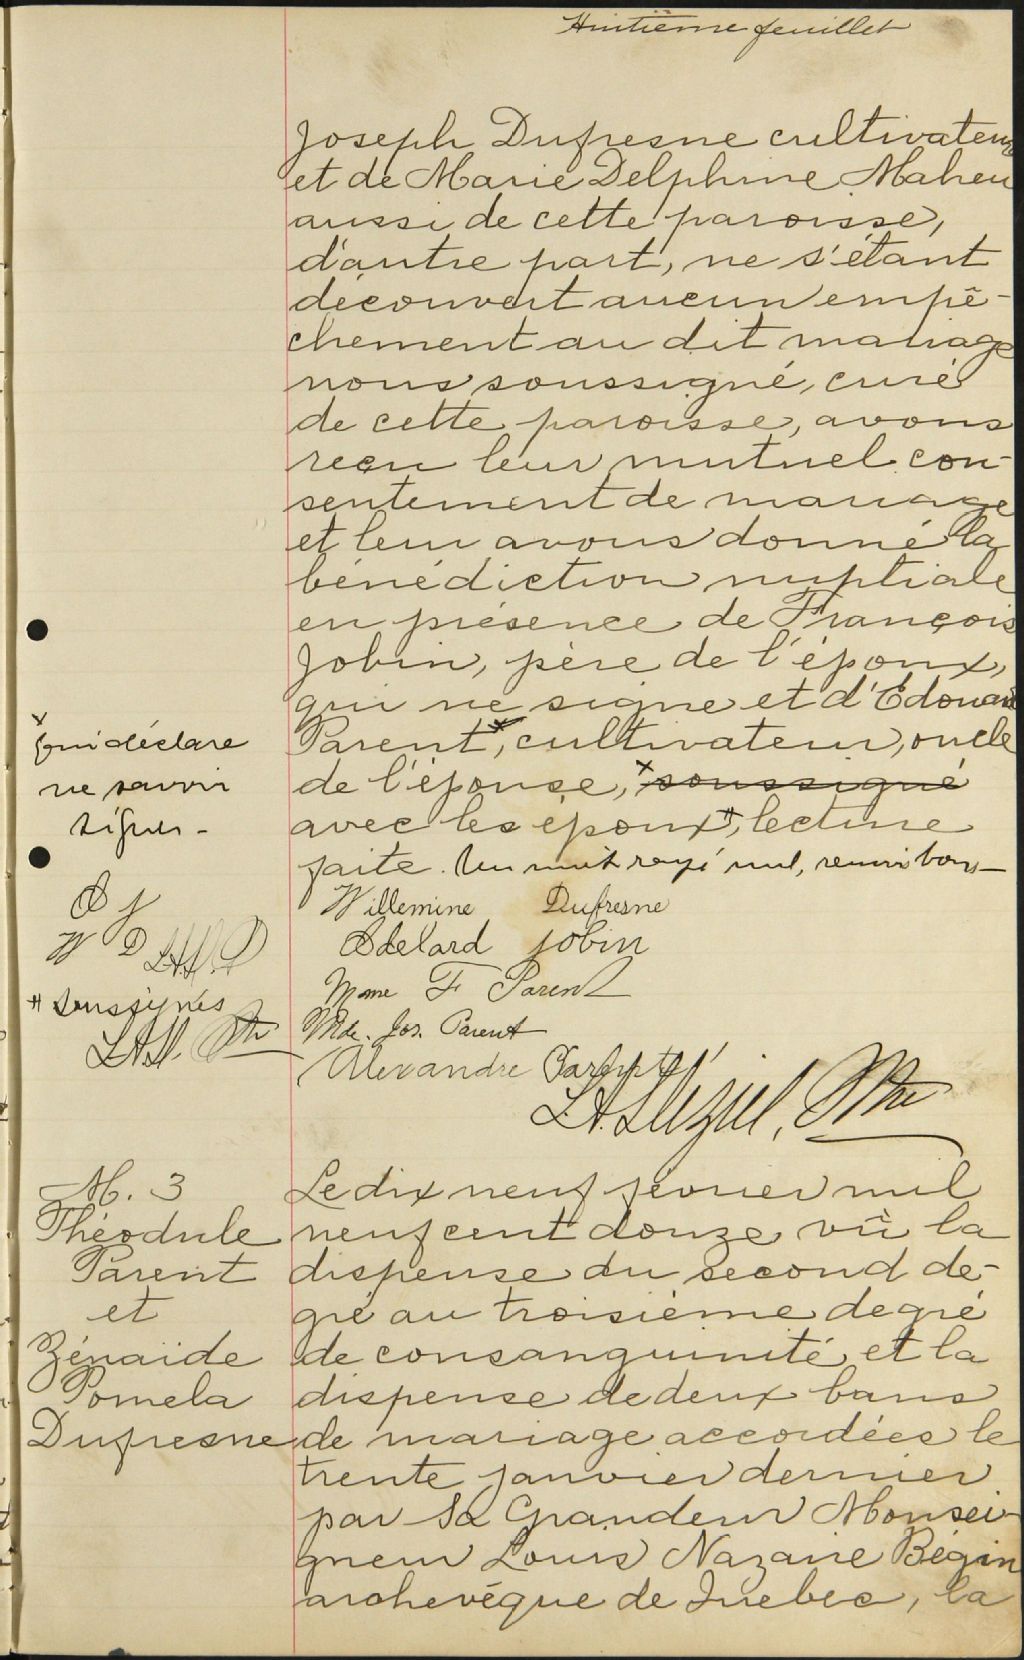 Huitième feuillet
Joseph Dufresne cultivateur
et de Marie Delphine Maheu
aussi de cette paroisse,
d'autre part, ne s'étant
découvert aucun empê-
chement au dit mariage
nous soussigné, curé
de cette paroisse, avons
reçu leur mutuel con-
sentement de mariage
et leur avons donné la
bénédiction nuptiale
en présence de François
Jobin, père de l'époux,
qui ne signe et d'Edouard
Parent, cultivateur, oncle
de l'épouse, soussigné
avec les époux, lecture
faite. Un mot rayé nul, renvois bons
x
qui déclare
ne savoir
signer -
A J
W D
" soussignés
Willemine Dufresne
Adelard Jobin
Mme F Parent
Mde. Jos. Parent
Alexandre
L.A. Ptre
M. 3
Théodule
Parent
et
Zénaïde
Pomela
Dufresne
Le dix neuf février mil
neuf cent douze vû la
dispense du second de-
gré au troisième degré
de consanguinité et la
dispense de deux bans
de mariage accordées le
trente janvier dernier
par Sa Grandeur Monsei-
gneur Louis Nazaire Bégin
archevêque de Quebec, la